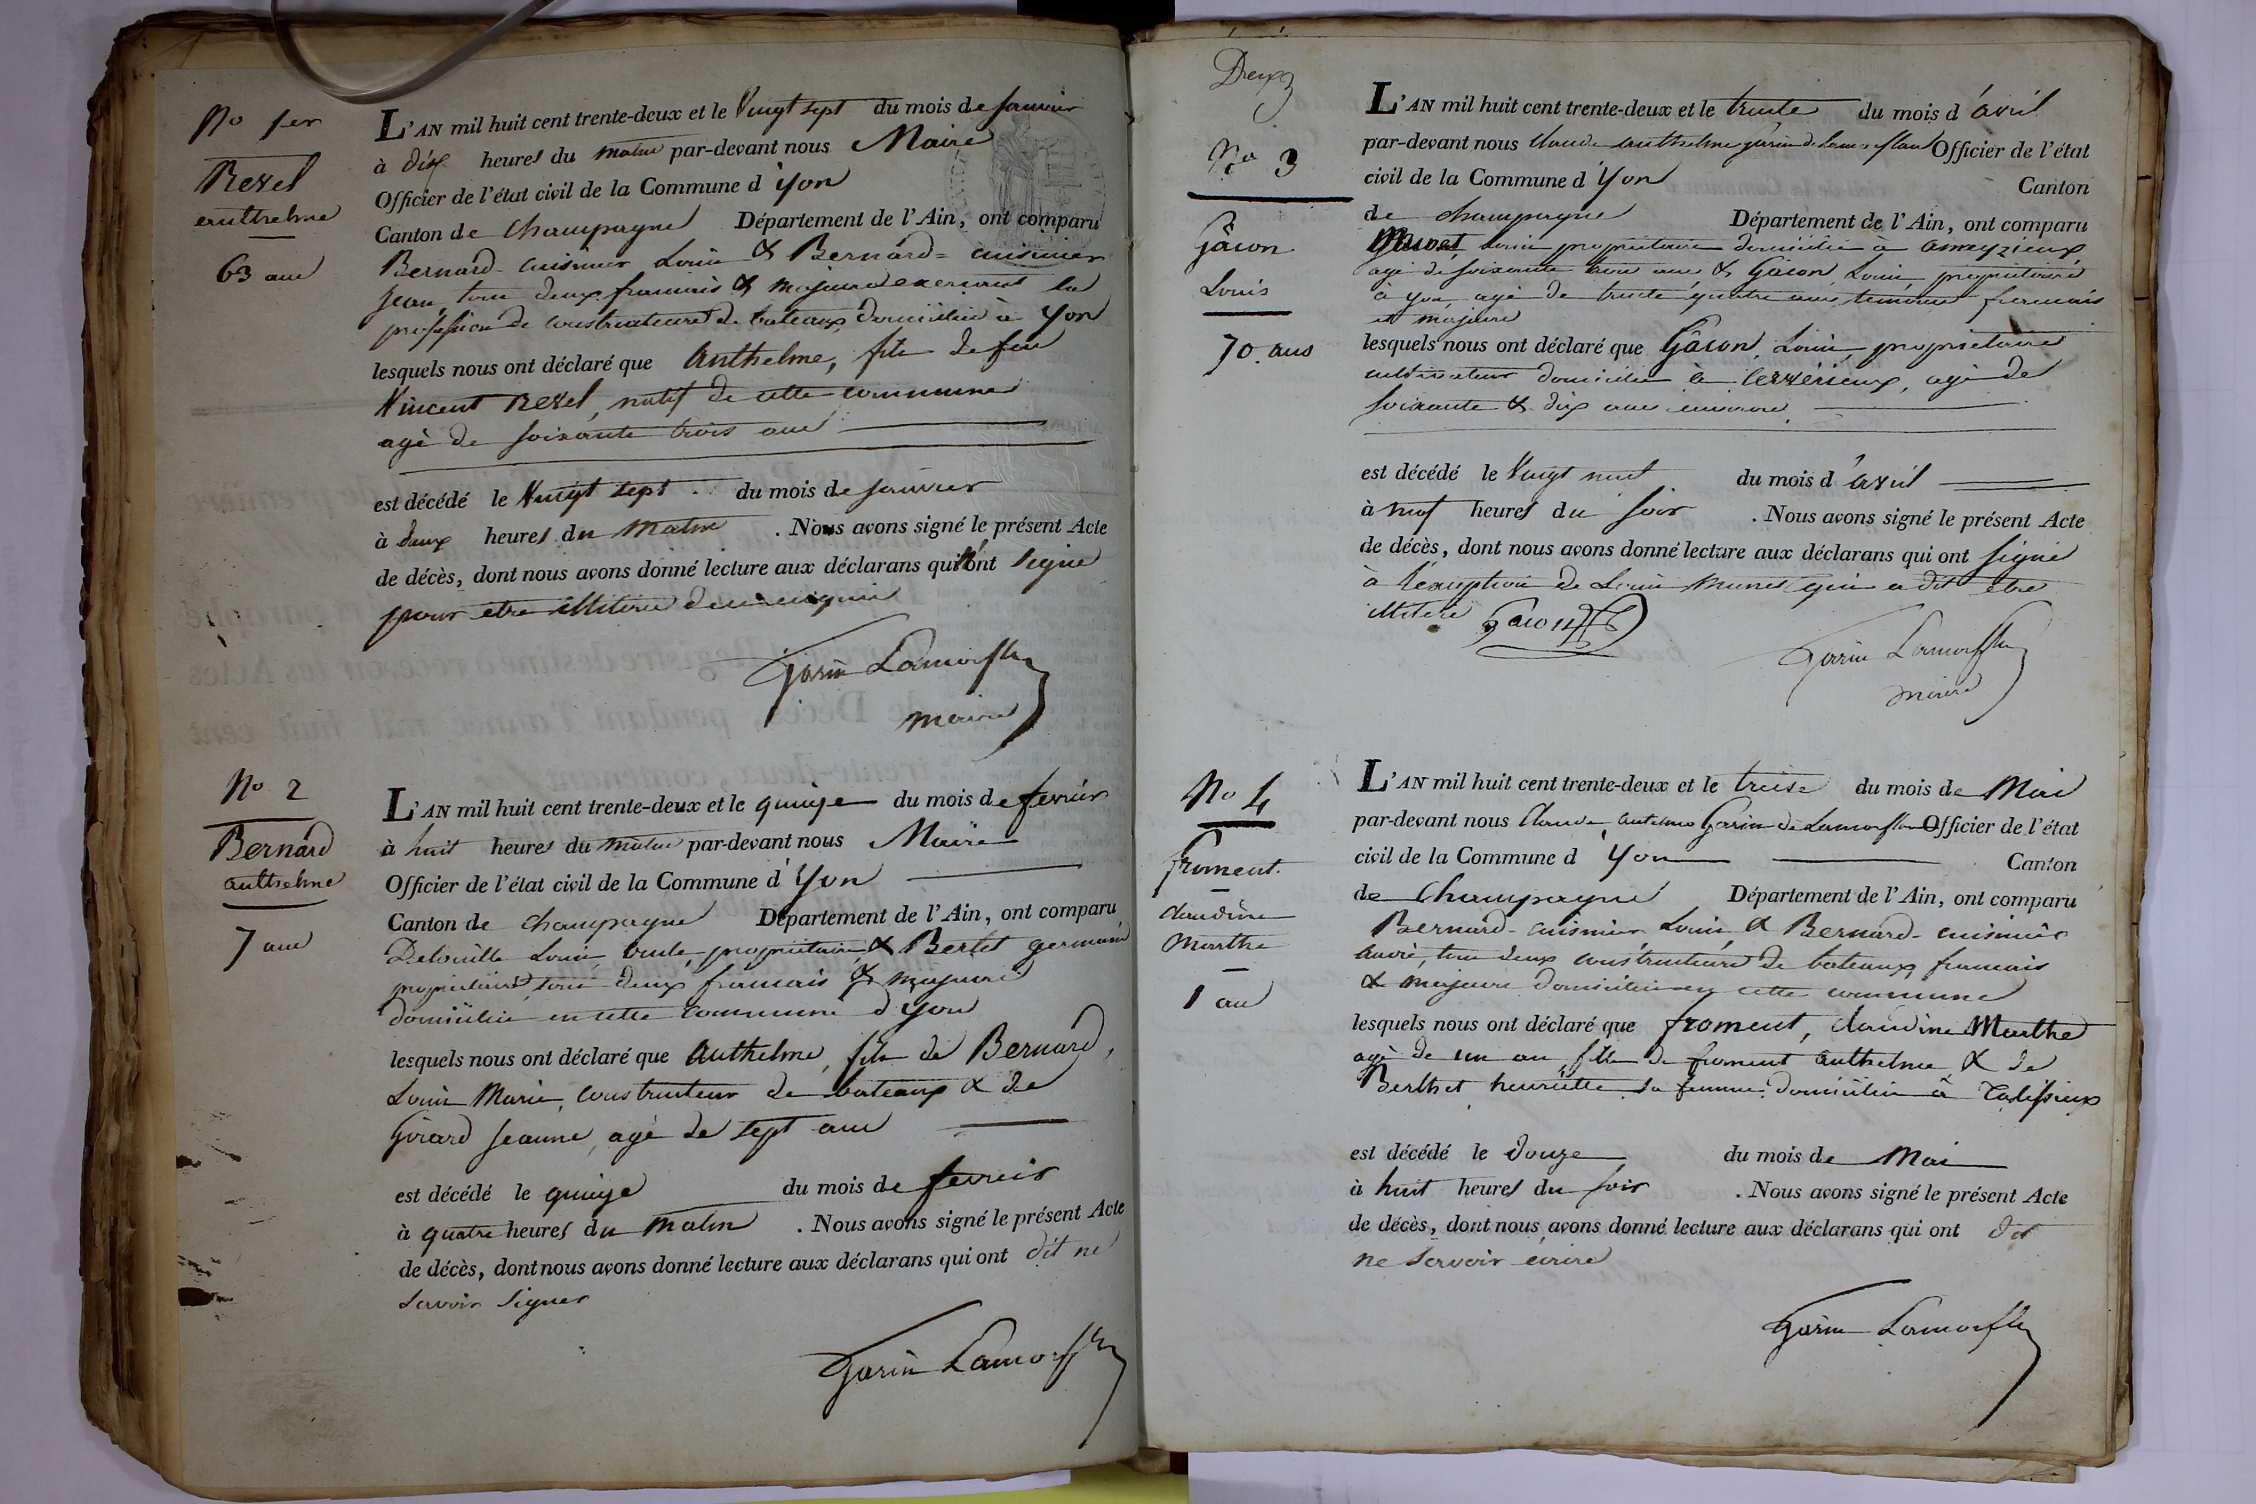 No 1er
Rezel
anthelme
63 ans
L'AN mil huit cent trente-deux et le Vingt sept du mois de janvier
à dix heures du matin par-devant nous Maire
Officier de l'état civil de la Commune d'yon
Canton de Champagne Département de l'Ain, ont comparu
Bernard-cuisinier Louis & Bernard-cuisinier
Jean, tous deux francais & majeurs exercant la
profession de constructeurs de bateaux domiciliés à yon
lesquels nous ont déclaré que anthelme, fils de feu
Vincent Rezel, natif de cette commune
agé de soixante trois ans
est décédé le Vingt sept du mois de janvier
à deux heures du matin. Nous avons signé le présent Acte
de décès, dont nous avons donné lecture aux déclarans qui n'ont signé
pour etre illiterés de ce enquis
Garin Lamorflan
maire
No 2
Bernard
anthelme
7 ans
L'AN mil huit cent trente-deux et le quinze du mois de fevrier
à huit heures du matin par-devant nous Maire
Officier de l'état civil de la Commune d'yon
Canton de Champagne Département de l'Ain, ont comparu
Delouille Louis, propriétaire, & Bertet germain
propriétaire, tous deux francais & majeurs
domiciliés en cette commune d'yon
lesquels nous ont déclaré que anthelme, fils de Bernard,
Louis Marie, constructeur de bateaux & de
Girard Jeanne, agé de sept ans
est décédé le quinze du mois de fevrier
à quatre heures du matin. Nous avons signé le présent Acte
de décès, dont nous avons donné lecture aux déclarans qui ont dit ne
savoir signer
Garin Lamorflan
Deux
No 3
Gâcon
Louis
70 ans
L'AN mil huit cent trente-deux et le trente du mois d'avril
par-devant nous Claude anthelme garin de Lamorflan Officier de l'état
civil de la Commune d'yon Canton
de Champagne Département de l'Ain, ont comparu
Munet, Louis propriétaire domicilié à ameyzieux
agé de soixante trois ans & Gâcon, Louis, propriétaire
à yon, agé de trente quatre ans, temoins francais
et majeurs
lesquels nous ont déclaré que Gâcon, Louis, propriétaire
cultivateur domicilié à Cerzerieux, agé de
soixante & dix ans environ
est décédé le Vingt neuf du mois d'avril
à neuf heures du soir. Nous avons signé le présent Acte
de décès, dont nous avons donné lecture aux déclarans qui ont signé
à l'exception de Louis Munet qui a dit etre
illiteré Gacon
Garin Lamorflan
maire
No 4
froment.
claudine
Marthe
1 an
L'AN mil huit cent trente-deux et le treise du mois de Mai
par-devant nous Claude, antelme Garin de Lamorflan Officier de l'état
civil de la Commune d'yon Canton
de Champagne Département de l'Ain, ont comparu
Bernard-cuisinier Louis, & Bernard-cuisinier
André, tous deux constructeurs de bateaux, francais
& majeurs domiciliés en cette commune
lesquels nous ont déclaré que froment, claudine Marthe
agé de un an, fille de froment anthelme & de
Berthet henriette sa femme, domiciliés à Talissieux
est décédé le douze du mois de Mai
à huit heures du soir. Nous avons signé le présent Acte
de décès, dont nous avons donné lecture aux déclarans qui ont dit
ne savoir écrire
Garin Lamorflan